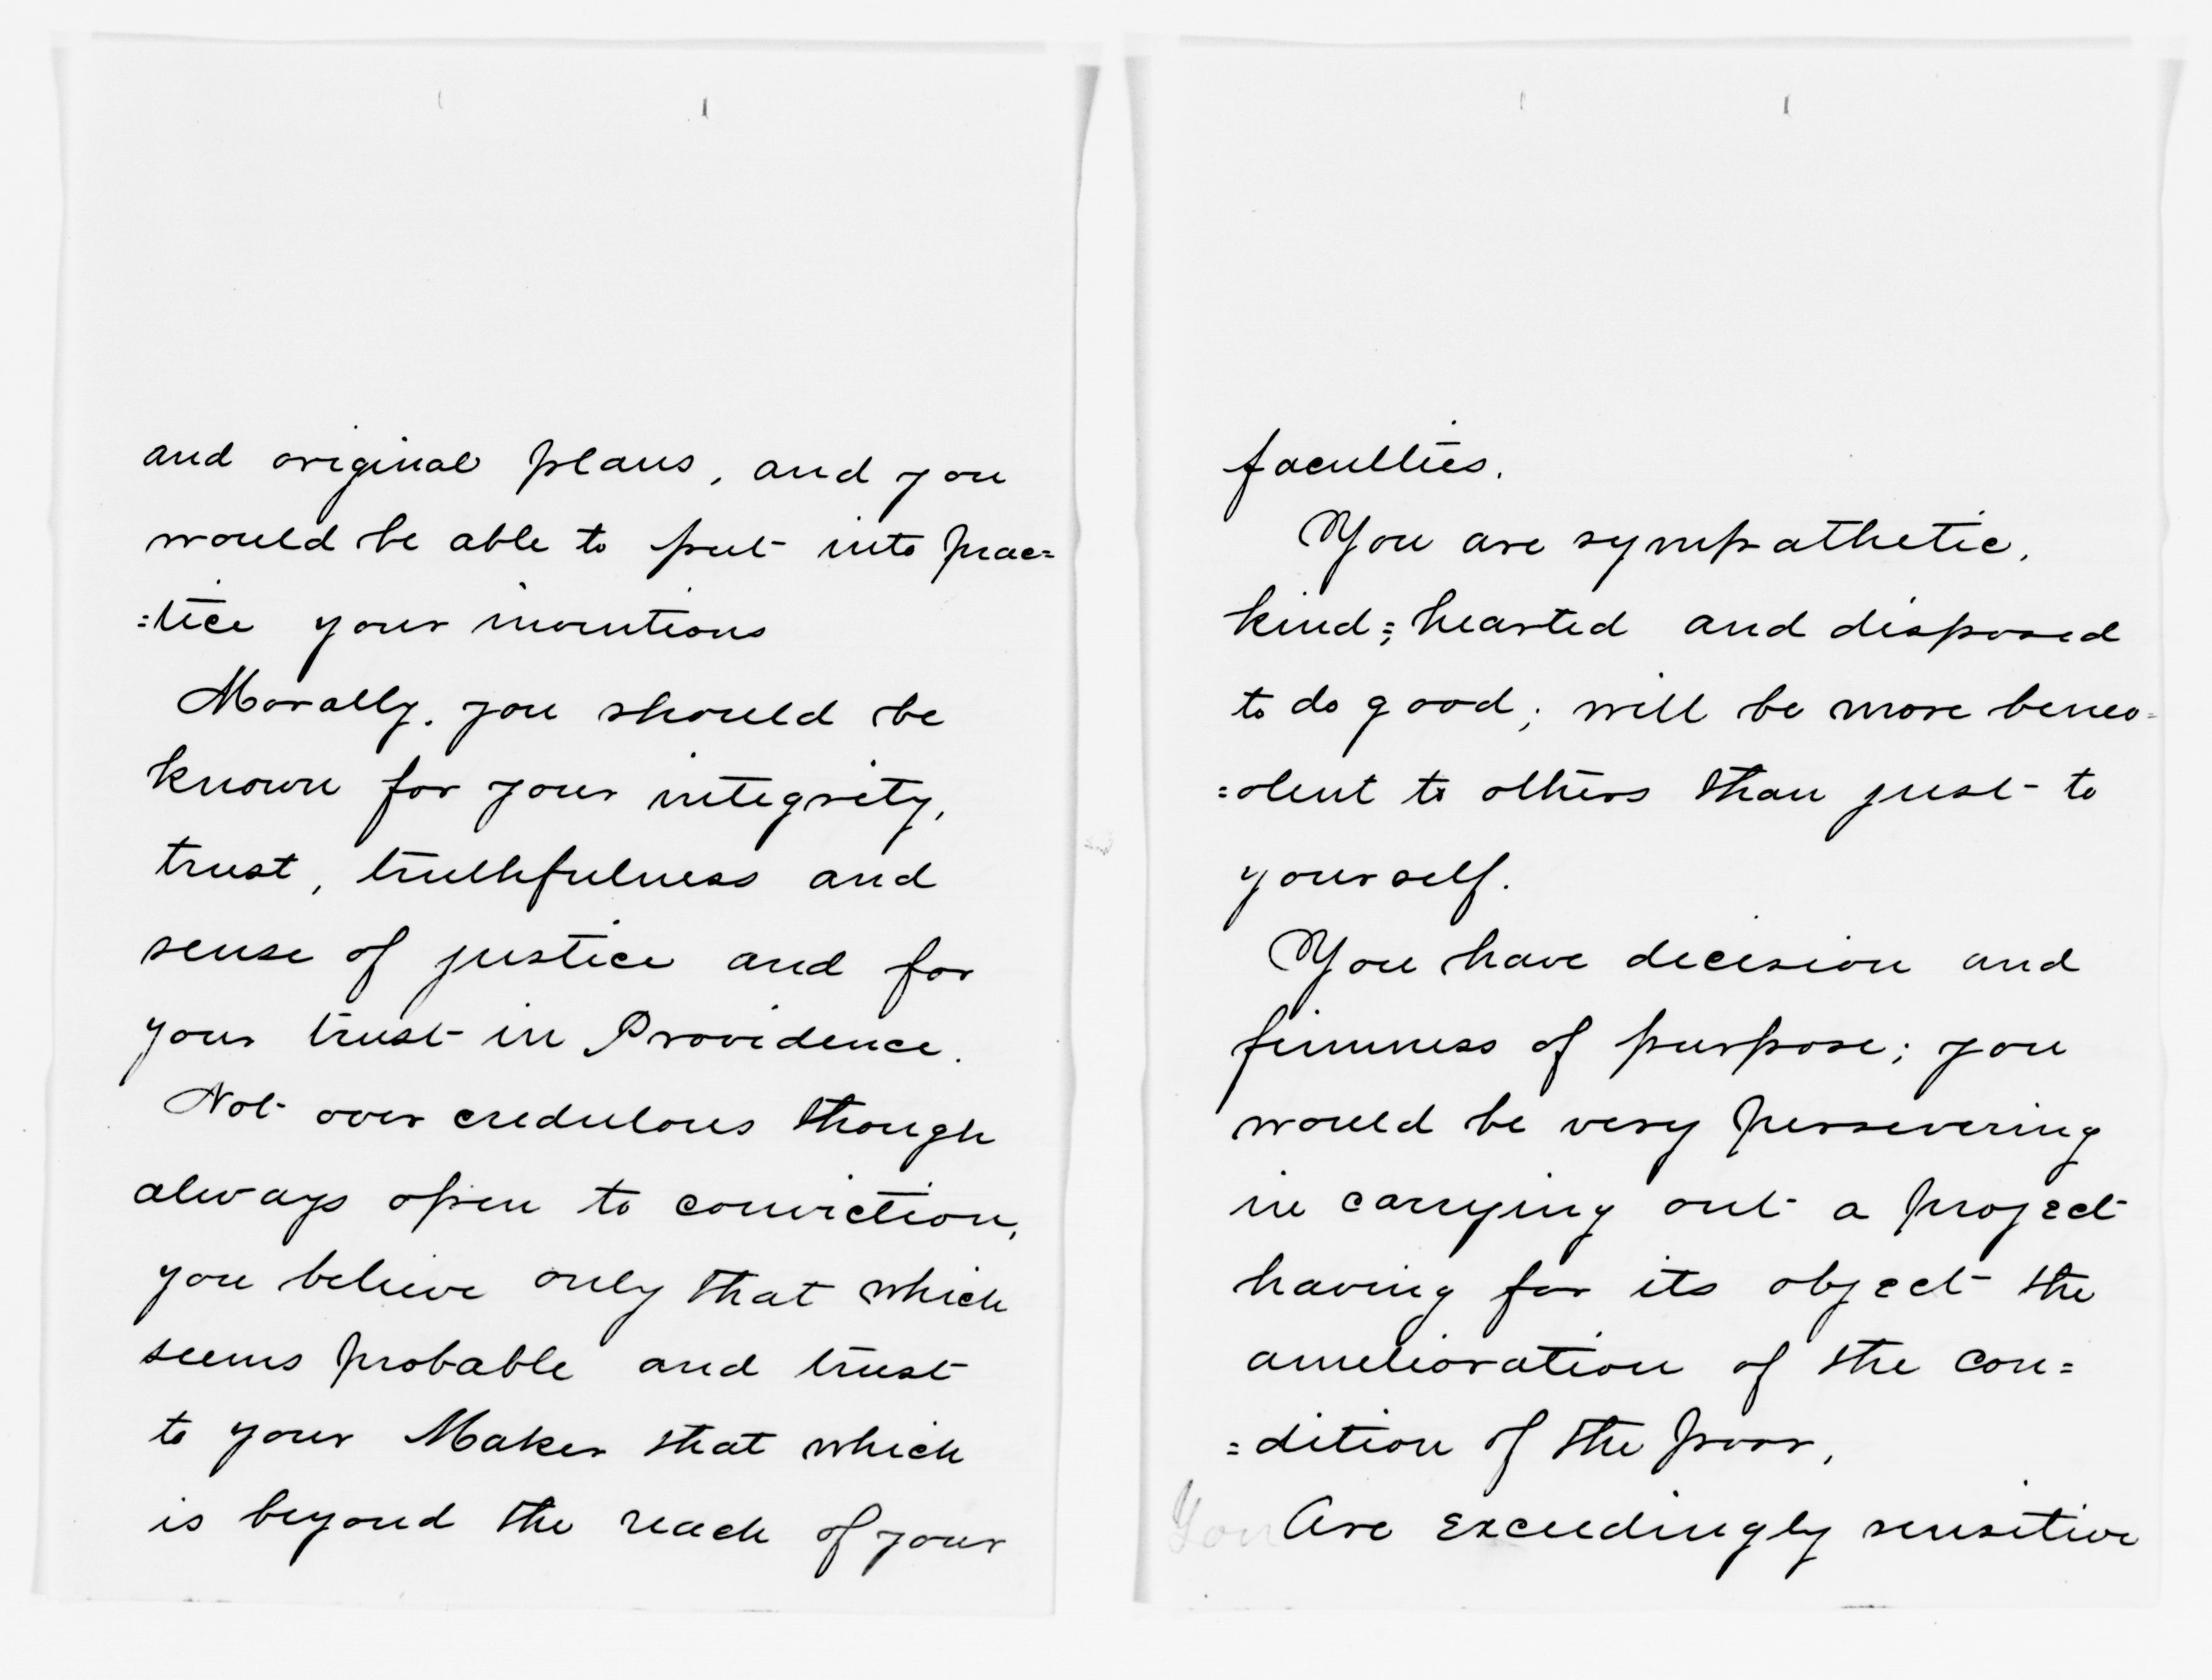 and original plans, and you
would be able to put into prac=
=tice your inventions
Morally. you should be
known for your integrity,
trust, truthfulness and
sense of justice and for
your trust in Providence.
Not over credulous though
always open to conviction,
you believe only that which
seems probable and trust
to your Maker that which
is beyond the reach of your
faculties.
You are sympathetic,
kind=hearted and disposed
to do good; will be more benev=
=olent to others than just to
yourself.
You have decision and
firmness of purpose; you
would be very persevering
in carrying out a project
having for its object the
amelioration of the con=
=dition of the poor,
You Are exceedingly sensitive